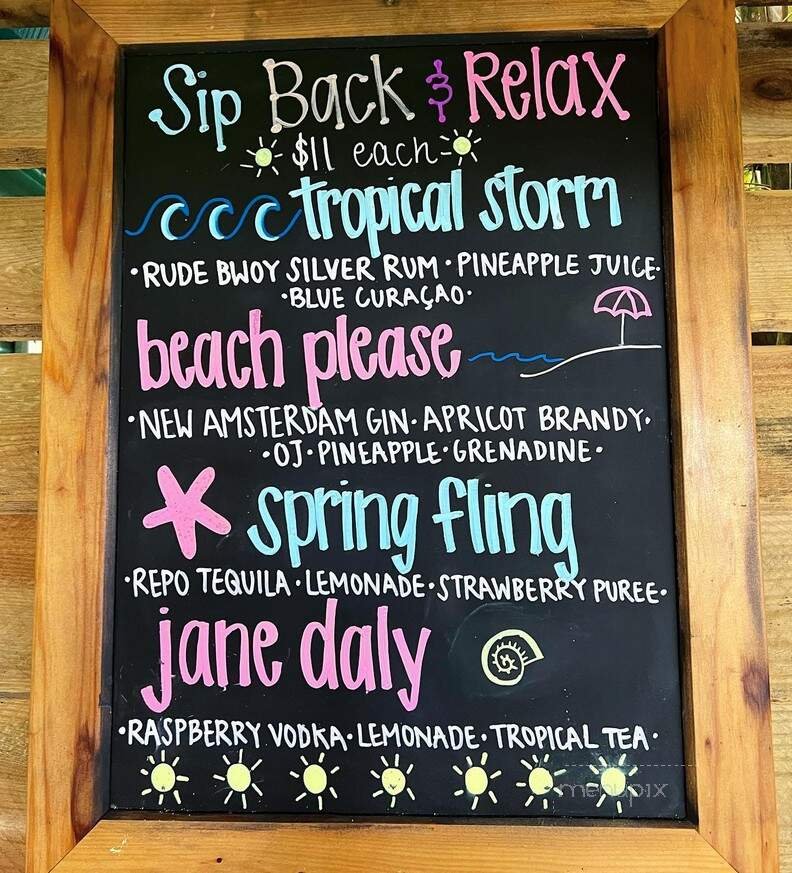 Sip Back & Relax
$11 each
tropical storm
·RUDE BWOY SILVER RUM·PINEAPPLE JUICE·
·BLUE CURAÇAO·
beach please
·NEW AMSTERDAM GIN·APRICOT BRANDY·
·OJ·PINEAPPLE·GRENADINE·
spring fling
·REPO TEQUILA·LEMONADE·STRAWBERRY PUREE·
jane daly
·RASPBERRY VODKA·LEMONADE·TROPICAL TEA·
menupix